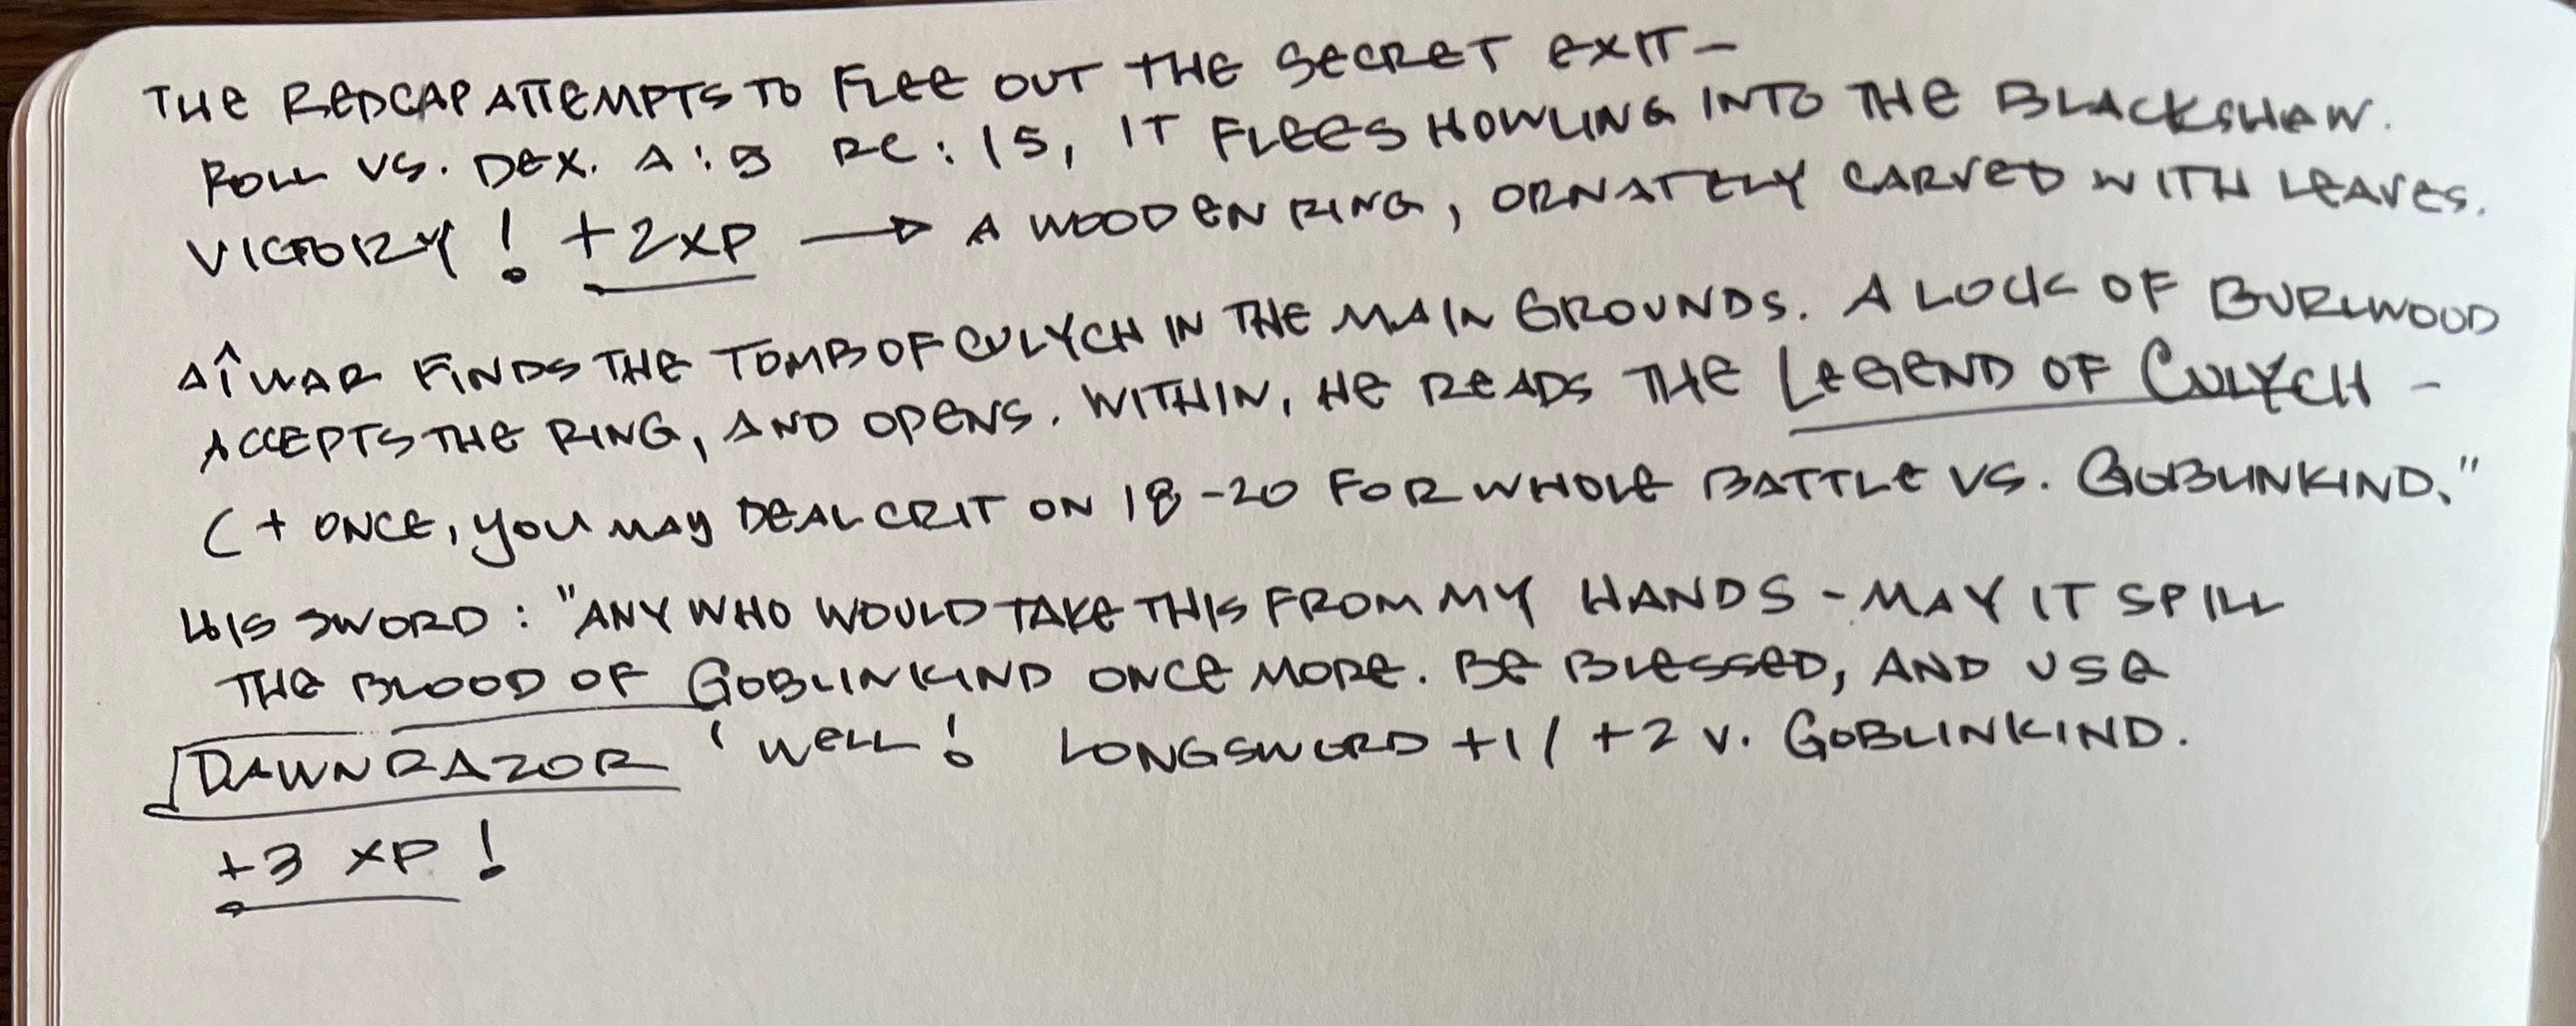 THE REDCAP ATTEMPTS TO FLEE OUT THE SECRET EXIT –
ROLL VS. DEX. A: 9 RC: 15, IT FLEES HOWLING INTO THE BLACKSHAW.
VICTORY! +2XP → A WOODEN RING, ORNATELY CARVED WITH LEAVES.
FINDS THE TOMB OF CULYCH IN THE MAIN GROUNDS. A LOCK OF BURLWOOD
ACCEPTS THE RING, AND OPENS. WITHIN, HE READS THE LEGEND OF CULYCH –
(+ ONCE, YOU MAY DEAL CRIT ON 18-20 FOR WHOLE BATTLE VS. GOBLINKIND."
HIS SWORD: "ANY WHO WOULD TAKE THIS FROM MY HANDS - MAY IT SPILL
THE BLOOD OF GOBLINKIND ONCE MORE. BE BLESSED, AND USE
DAWNRAZOR ' WELL! LONGSWORD +1/+2 V. GOBLINKIND.
+3 XP!